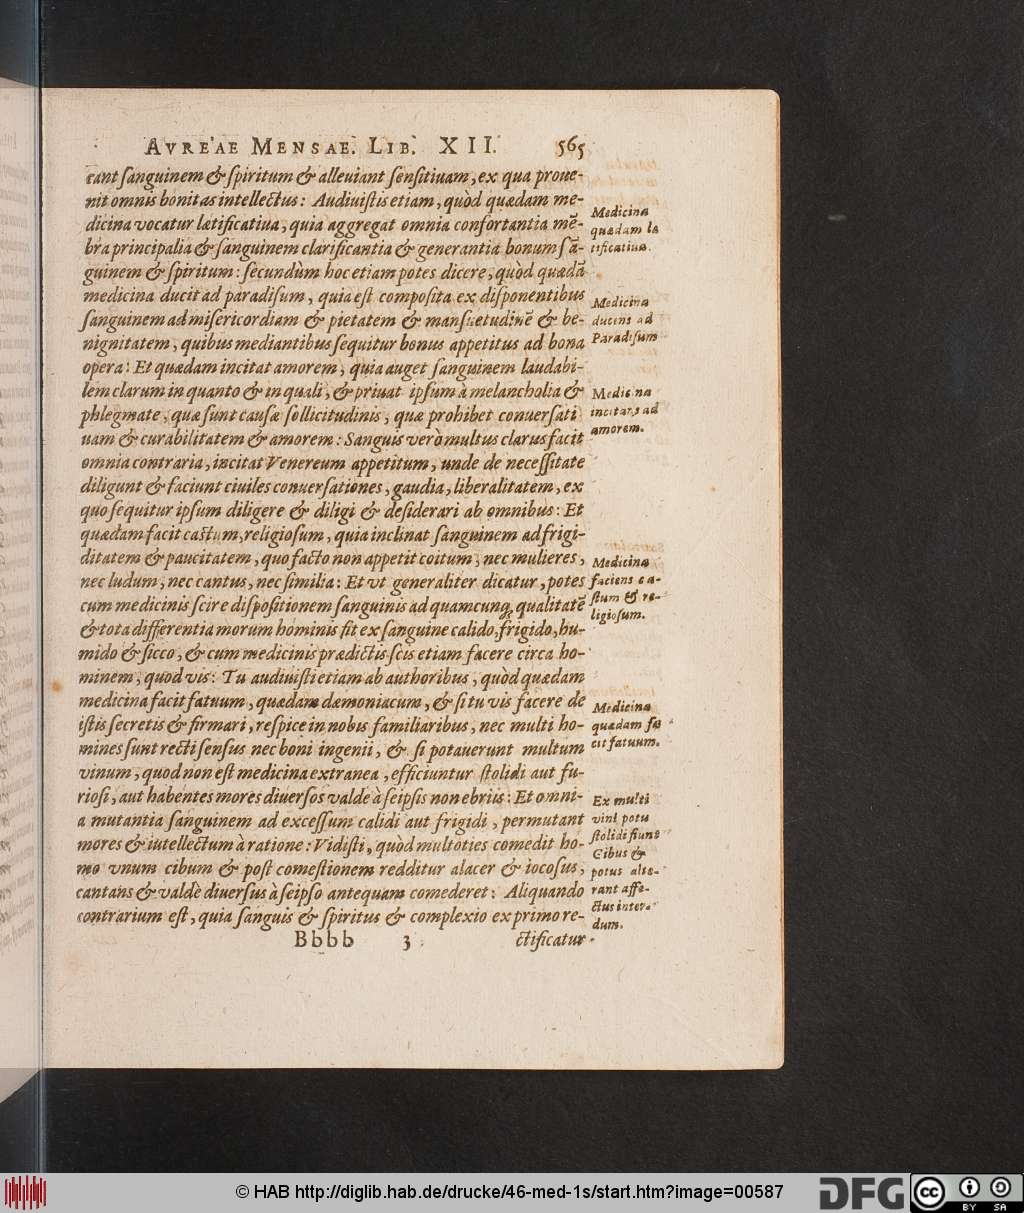 AVREAE MENSAE. LIB. XII. 565
cant sanguinem & spiritum & alleuiant sensitiuam, ex qua proue-
nit omnis bonitas intellectus: Audiuistis etiam, quòd quædam me-
dicina vocatur lætificatiua, quia aggregat omnia confortantia mē-
bra principalia & sanguinem clarificantia & generantia bonum sā-
guinem & spiritum: secundùm hoc etiam potes dicere, quòd quædā
medicina ducit ad paradisum, quia est composita ex disponentibus
sanguinem ad misericordiam & pietatem & mansuetudinē & be-
nignitatem, quibus mediantibus sequitur bonus appetitus ad bona
opera: Et quædam incitat amorem, quia auget sanguinem laudabi-
lem clarum in quanto & in quali, & priuat ipsum à melancholia &
phlegmate, quæ sunt causæ sollicitudinis, quæ prohibet conuersati
uam & curabilitatem & amorem: Sanguis verò multus clarus facit
omnia contraria, incitat Venereum appetitum, unde de necessitate
diligunt & faciunt ciuiles conuersationes, gaudia, liberalitatem, ex
quo sequitur ipsum diligere & diligi & desiderari ab omnibus: Et
quædam facit castum, religiosum, quia inclinat sanguinem ad frigi-
ditatem & paucitatem, quo facto non appetit coitum, nec mulieres,
nec ludum, nec cantus, nec similia: Et vt generaliter dicatur, potes
cum medicinis scire dispositionem sanguinis ad quamcunq, qualitatē
& tota differentia morum hominis fit ex sanguine calido, frigido, hu-
mido & sicco, & cum medicinis prædictis scis etiam facere circa ho-
minem, quod vis: Tu audiuisti etiam ab authoribus, quòd quædam
medicina facit fatuum, quædam dæmoniacum, & si tu vis facere de
istis secretis & firmari, respice in nobis familiaribus, nec multi ho-
mines sunt recti sensus nec boni ingenii, & si potauerunt multum
vinum, quod non est medicina extranea, efficiuntur stolidi aut fu-
riosi, aut habentes mores diuersos valde à seipsis non ebriis: Et omni-
a mutantia sanguinem ad excessum calidi aut frigidi, permutant
mores & intellectum à ratione: Vidisti, quòd multoties comedit ho-
mo vnum cibum & post comestionem redditur alacer & iocosus,
cantans & valdè diuersus à seipso antequam comederet: Aliquando
contrarium est, quia sanguis & spiritus & complexio ex primo re-
Bbbb 3 ctificatur
Medicina
quædam læ
tificatiua.
Medicina
ducens ad
Paradisum
Medicina
incitans ad
amorem.
Medicina
faciens ca-
stum & re-
ligiosum.
Medicina
quædam fa
cit fatuum.
Ex multi
vini potu
stolidi fiunt
Cibus &
potus alte-
rant affe-
ctus inter-
dum.
© HAB http://diglib.hab.de/drucke/46-med-1s/start.htm?image=00587
DFG
cc BY SA